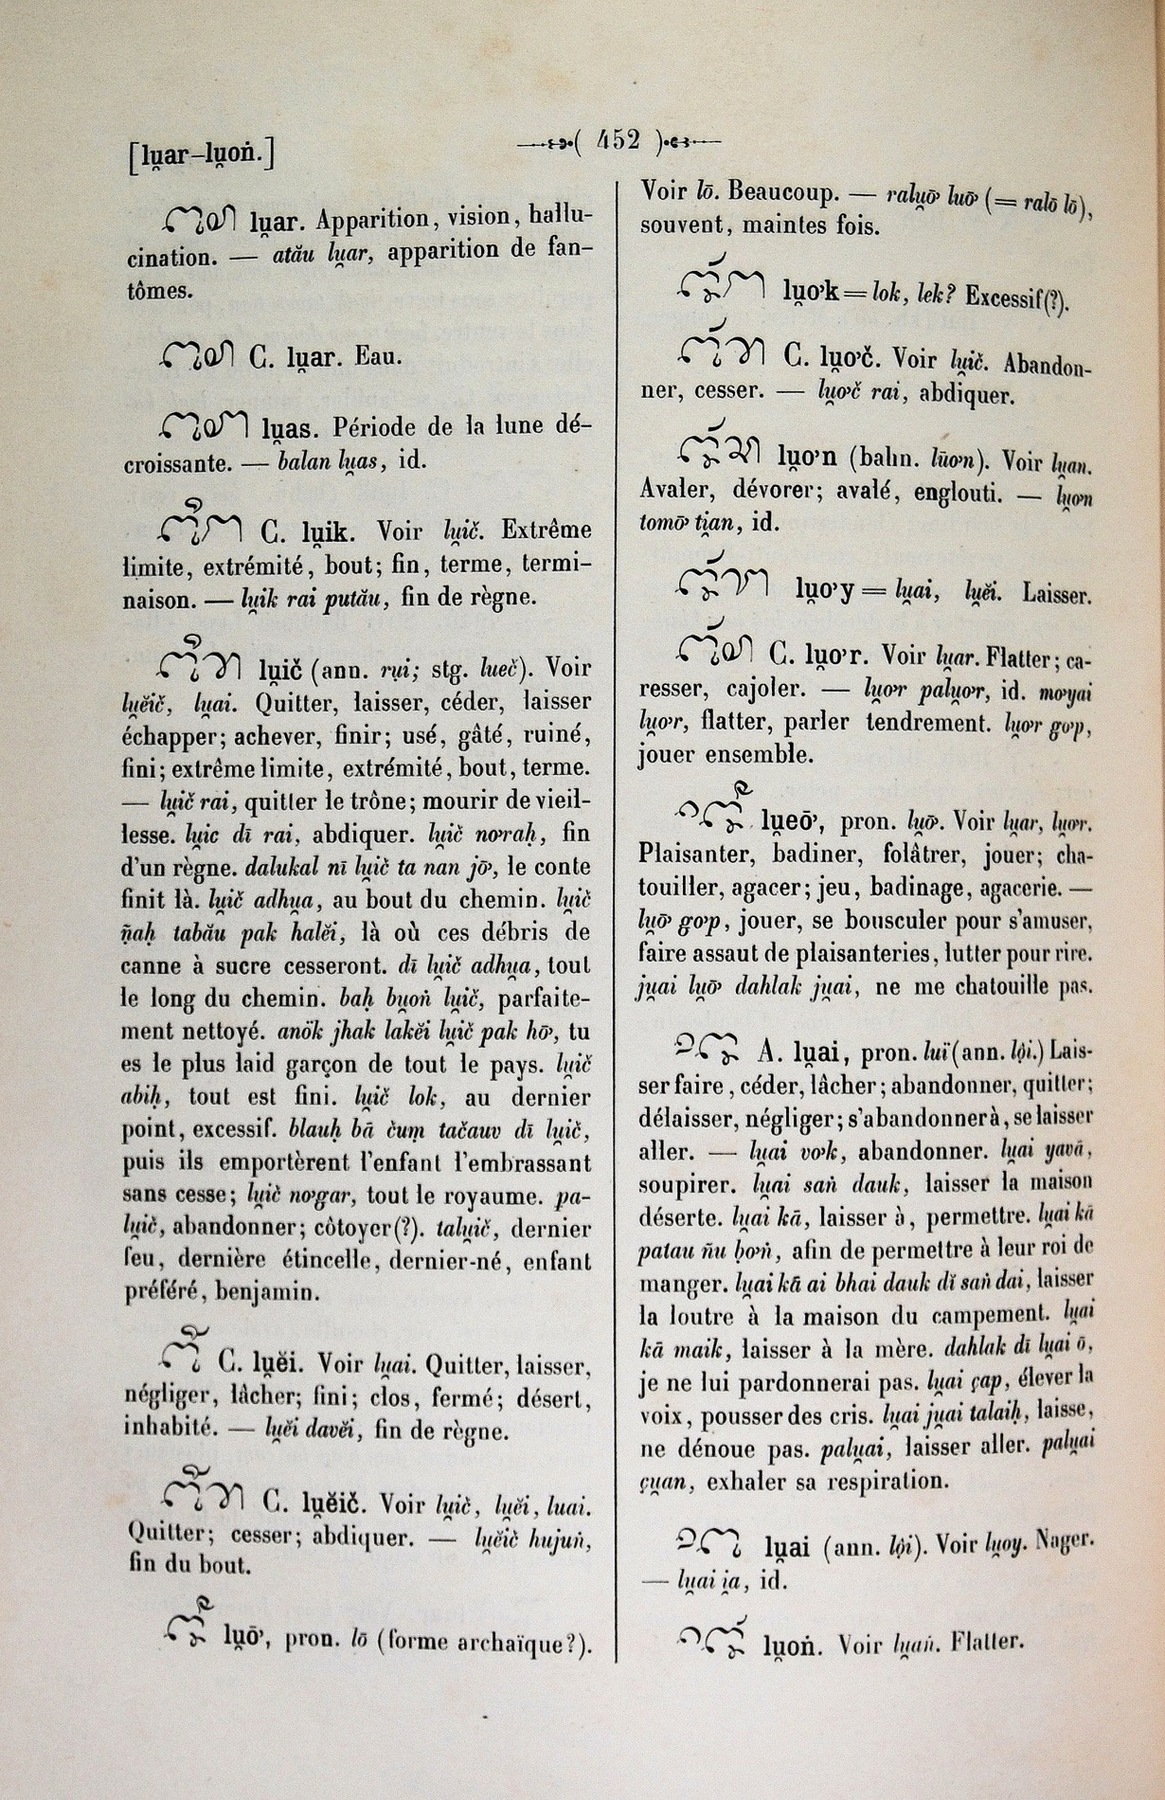 [lu̯ar-lu̯oṅ.]
( 452 )
lu̯ar. Apparition, vision, hallu-
cination. — atău lu̯ar, apparition de fan-
tômes.
C. lu̯ar. Eau.
lu̯as. Période de la lune dé-
croissante. — balan lu̯as, id.
C. lu̯ik. Voir lu̯ič. Extrême
limite, extrémité, bout; fin, terme, termi-
naison. — lu̯ik rai putău, fin de règne.
lu̯ič (ann. rụi; stg. lueč). Voir
lu̯ĕič, lu̯ai. Quitter, laisser, céder, laisser
échapper; achever, finir; usé, gâté, ruiné,
fini; extrême limite, extrémité, bout, terme.
— lu̯ič rai, quitter le trône; mourir de vieil-
lesse. lu̯ic dī rai, abdiquer. lu̯ič nơraḥ, fin
d'un règne. dalukal nī lu̯ič ta nan jơ̄, le conte
finit là. lu̯ič adhu̯a, au bout du chemin. lu̯ič
ñaḥ tabău pak halĕi, là où ces débris de
canne à sucre cesseront. dī lu̯ič adhu̯a, tout
le long du chemin. baḥ bu̯oṅ lu̯ič, parfaite-
ment nettoyé. anök jhak lakĕi lu̯ič pak hơ̄, tu
es le plus laid garçon de tout le pays. lu̯ič
abiḥ, tout est fini. lu̯ič lok, au dernier
point, excessif. blauḥ bā čuṃ tačauv dī lu̯ič,
puis ils emportèrent l'enfant l'embrassant
sans cesse; lu̯ič nơgar, tout le royaume. pa-
lu̯ič, abandonner; côtoyer(?). talu̯ič, dernier
feu, dernière étincelle, dernier-né, enfant
préféré, benjamin.
C. lu̯ĕi. Voir lu̯ai. Quitter, laisser,
négliger, lâcher; fini; clos, fermé; désert,
inhabité. — lu̯ĕi davĕi, fin de règne.
C. lu̯ĕič. Voir lu̯ič, lu̯ĕi, luai.
Quitter; cesser; abdiquer. — lu̯ĕič hujuṅ,
fin du bout.
lu̯ơ̄, pron. lō (forme archaïque?).
Voir lō. Beaucoup. — ralu̯ơ̄ luơ̄ (= ralō lō),
souvent, maintes fois.
lu̯ơk = lok, lek? Excessif(?).
C. lu̯ơč. Voir lu̯ič. Abandon-
ner, cesser. — lu̯ơč rai, abdiquer.
lu̯ơn (bahn. lūơn). Voir lu̯an.
Avaler, dévorer; avalé, englouti. — lu̯ơn
tomơ̄ ti̯an, id.
lu̯ơy = lu̯ai, lu̯ĕi. Laisser.
C. lu̯ơr. Voir lu̯ar. Flatter; ca-
resser, cajoler. — lu̯ơr palu̯ơr, id. mơyai
lu̯ơr, flatter, parler tendrement. lu̯ơr gơp,
jouer ensemble.
lu̯eơ̄, pron. lu̯ơ̄. Voir lu̯ar, lu̯ơr.
Plaisanter, badiner, folâtrer, jouer; cha-
touiller, agacer; jeu, badinage, agacerie. —
lu̯ơ̄ gơp, jouer, se bousculer pour s'amuser,
faire assaut de plaisanteries, lutter pour rire.
ju̯ai lu̯ơ̄ dahlak ju̯ai, ne me chatouille pas.
A. lu̯ai, pron. luï (ann. lọi.) Lais-
ser faire, céder, lâcher; abandonner, quitter;
délaisser, négliger; s'abandonner à, se laisser
aller. — lu̯ai vơk, abandonner. lu̯ai yavā,
soupirer. lu̯ai saṅ dauk, laisser la maison
déserte. lu̯ai kā, laisser à, permettre. lu̯ai kā
patau ñu ḅơṅ, afin de permettre à leur roi de
manger. lu̯ai kā ai bhai dauk dī saṅ dai, laisser
la loutre à la maison du campement. lu̯ai
kā maik, laisser à la mère. dahlak dī lu̯ai ō,
je ne lui pardonnerai pas. lu̯ai çap, élever la
voix, pousser des cris. lu̯ai ju̯ai talaiḥ, laisse,
ne dénoue pas. palu̯ai, laisser aller. palu̯ai
çu̯an, exhaler sa respiration.
lu̯ai (ann. lọi). Voir lu̯oy. Nager.
— lu̯ai i̯a, id.
lu̯oṅ. Voir lu̯aṅ. Flatter.